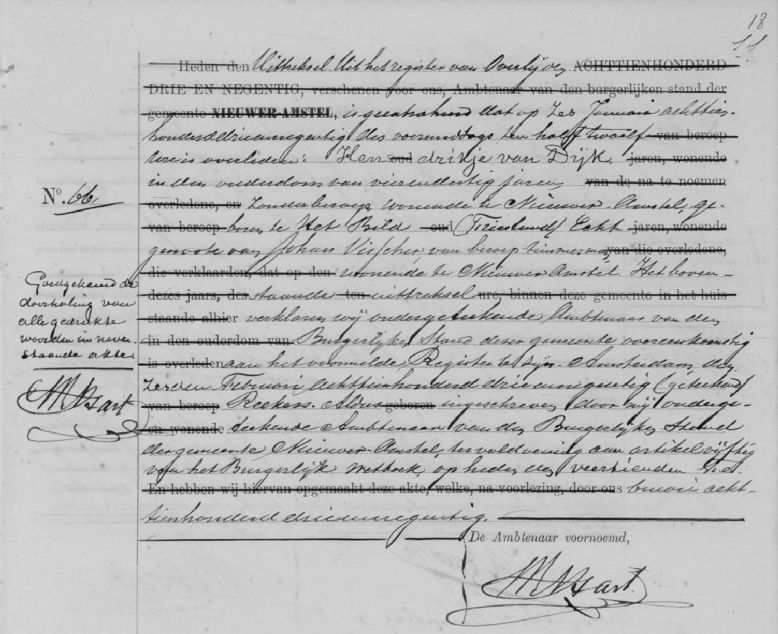 18
11
Heden den Uittreksel Uit het register van Overlijden ACHTTIENHONDERD
DRIE EN NEGENTIG, verschenen voor ons, Ambtenaar van den burgerlijken stand der
gemeente NIEUWER-AMSTEL, is geextraheerd dat op Zes Januari achttien-
honderddrieennegentig des voormiddags ten half twaalf van beroep
ure is overleden: Hen oud drikje van Dijk jaren, wonende
in den ouderdom van vierendertig jaren van de na te noemen
overledene, en Zonder beroep wonende te Nieuwer-Amstel, ge-
van beroep boren te Het Bild oud (Friesland) Echt jaren, wonende
genoote van Johan Visscher van beroep timmerman van die overledene,
die verklaarden, dat op den wonende te Nieuwer Amstel. Het boven-
dezes jaars, des staande ten uittreksel ure, binnen deze gemeente in het huis
staande alhier verklaren wij ondergeteekende, Ambtenaar van den
in den ouderdom van Burgerlijken Stand dezer gemeente overeenkomstig
is overleden aan het voormelde Register te zijn. Amsterdam, den
zesden Februari achttienhonderd drieennegentig (geteekend)
van beroep Reekers. Aldus geboren ingeschreven door mij onderge-
en wonende teekende Ambtenaar van den Burgerlijken Stand
der gemeente Nieuwer-Amstel, ter voldoening aan artikel vijftig
van het Burgerlijk Wetboek, op heden den veertienden Fe-
En hebben wij hiervan opgemaakt deze akte, welke, na voorlezing, door ons bruari acht-
tienhonderd drieennegentig.
De Ambtenaar voornoemd,
No. 66.
Goedgekeurd de
doorhaling van
alle gedrukte
woorden in neven-
staande akte